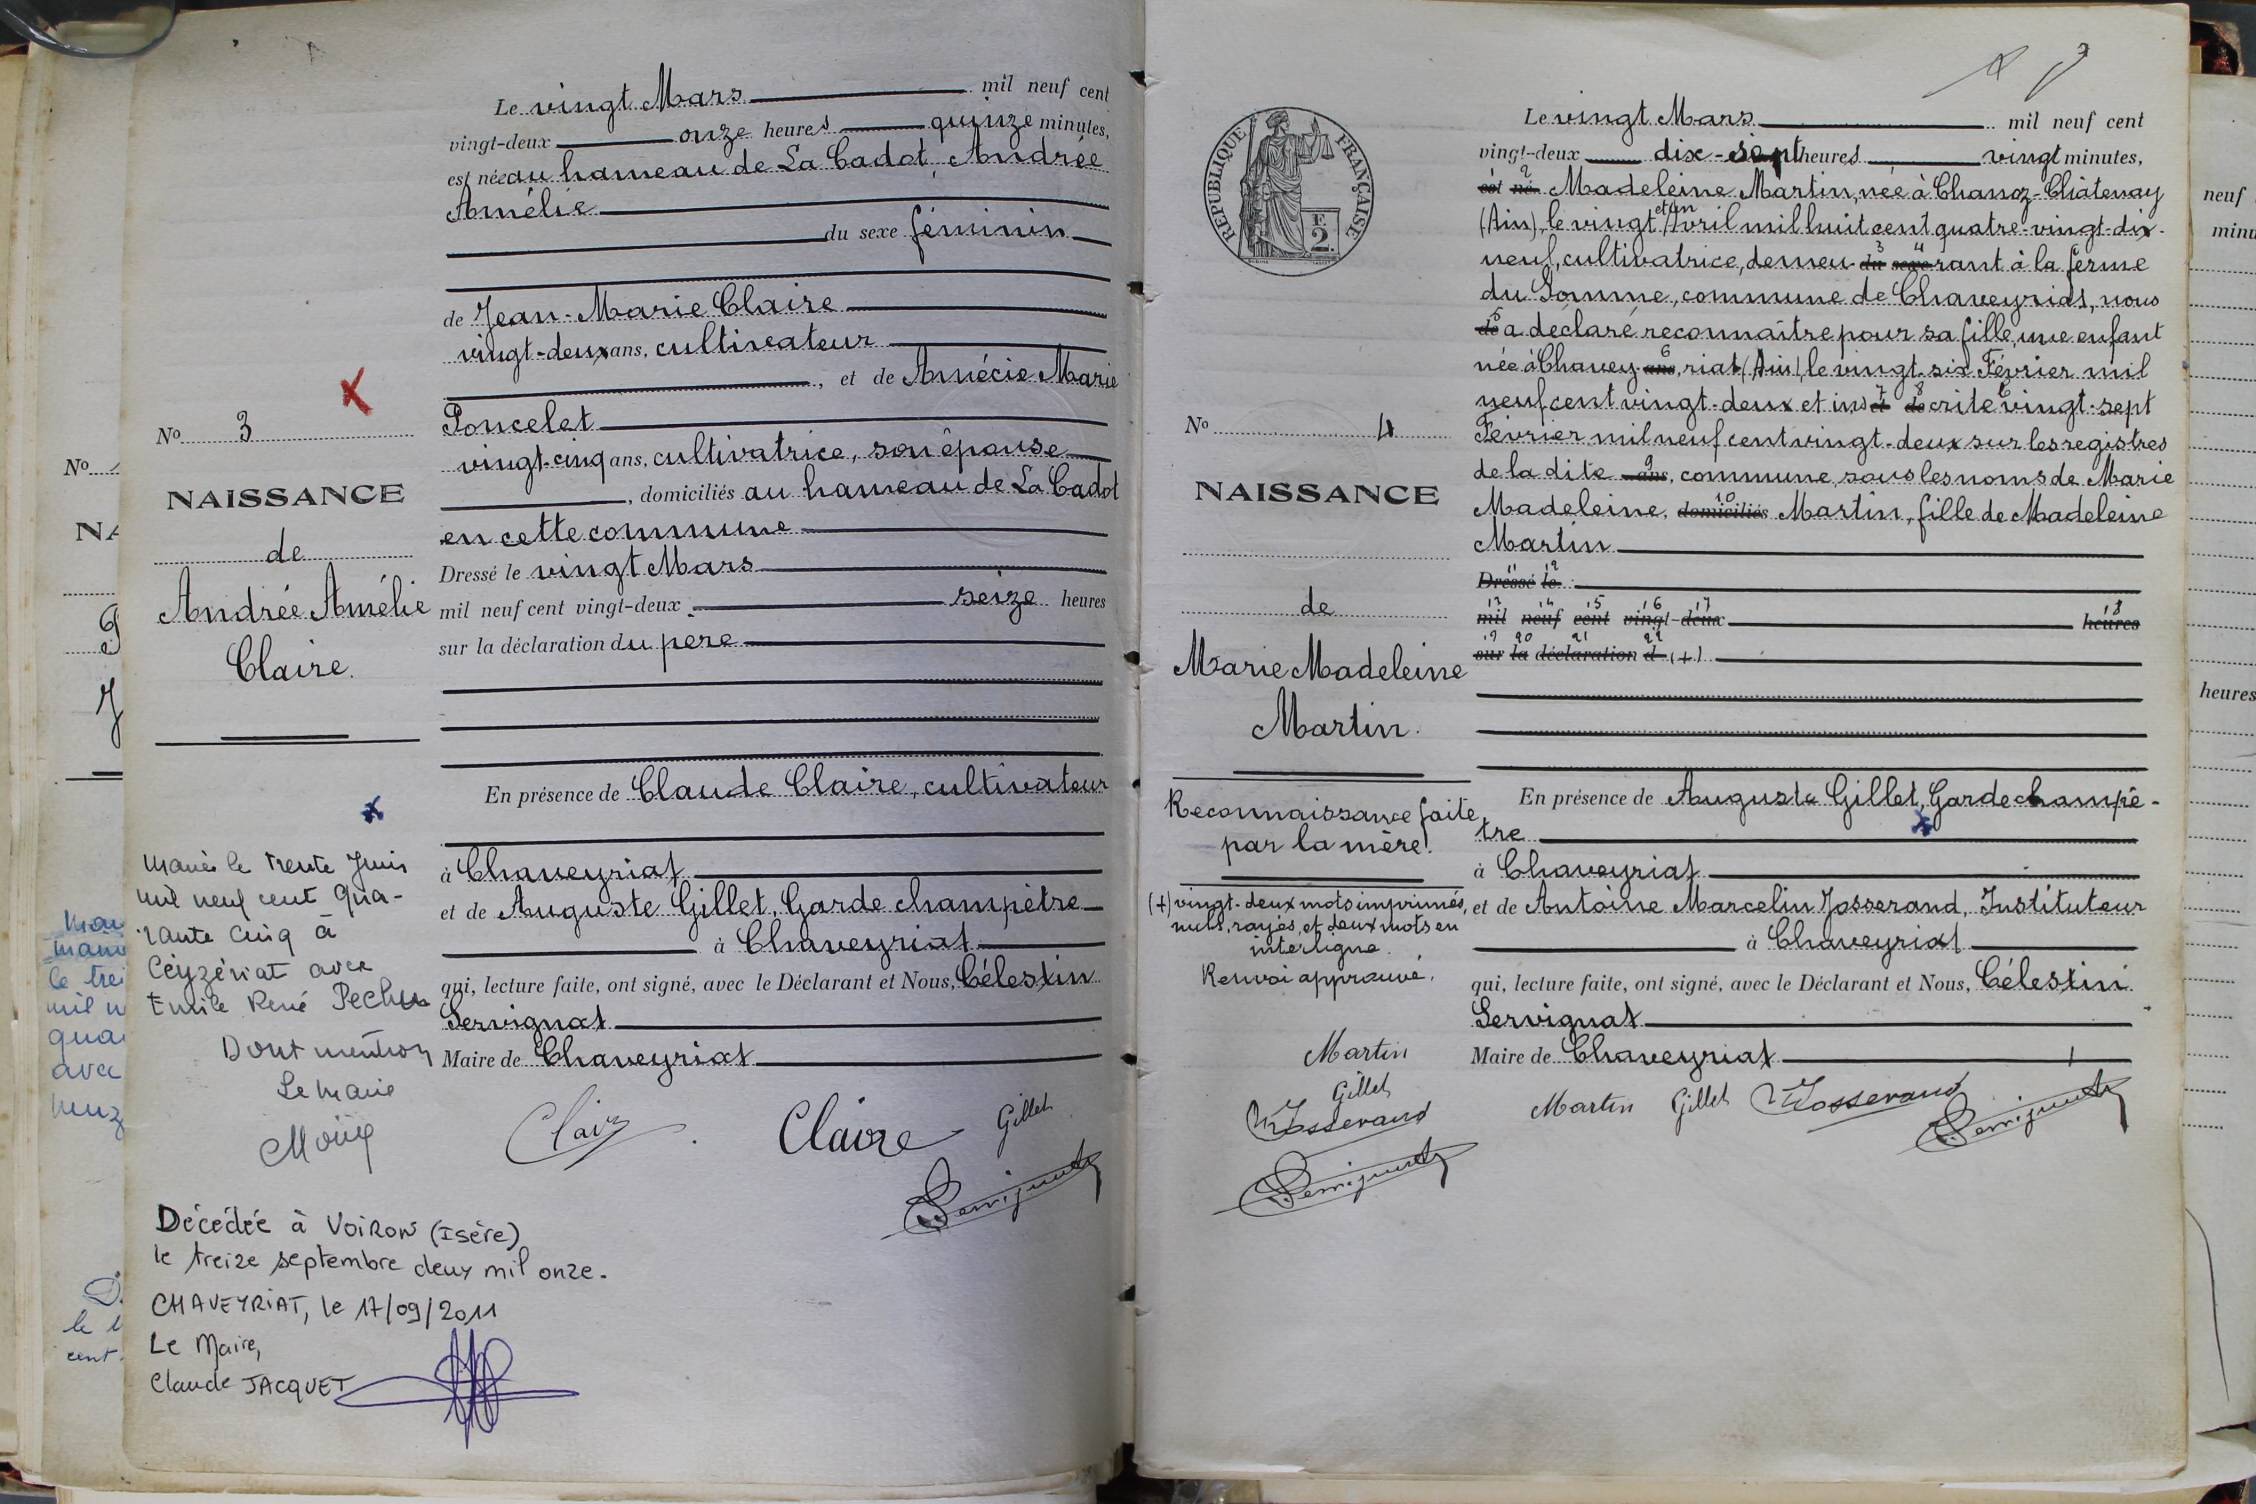 Le vingt Mars mil neuf cent
vingt-deux onze heures quinze minutes,
est née au hameau de La Cadot, Andrée
Amélie
du sexe féminin
de Jean-Marie Claire
vingt-deux ans, cultivateur
, et de Amécie Marie
Poncelet
vingt-cinq ans, cultivatrice, son épouse
, domiciliés au hameau de La Cadot
en cette commune
Dressé le vingt Mars
mil neuf cent vingt-deux seize heures
sur la déclaration du père
En présence de Claude Claire, cultivateur
à Chaveyriat
et de Auguste Gillet, Garde champêtre
à Chaveyriat
qui, lecture faite, ont signé, avec le Déclarant et Nous, Célestin
Servignat
Maire de Chaveyriat
Claire Gillet
No 3
NAISSANCE
de
Andrée Amélie
Claire.
Mariée le trente Juin
mil neuf cent qua-
rante cinq à
Ceyzériat avec
Emile René Pechu
Dont mention
Le Maire
Décédée à VOIRON (Isère)
le treize septembre deux mil onze.
CHAVEYRIAT, le 17/09/2011
Le Maire,
Claude JACQUET
RÉPUBLIQUE FRANÇAISE
2
Le vingt Mars mil neuf cent
vingt-deux dix-sept heures vingt minutes,
est né 2 Madeleine Martin, née à Chanoz-Châtenay
et un
(Ain), le vingt Avril mil huit cent quatre-vingt-dix-
neuf, cultivatrice, demeu- du 3 sexe 4 rant à la ferme
du Somme, commune de Chaveyriat, nous
de 5 a déclaré reconnaître pour sa fille, une enfant
née à Chavey- ans 6, riat (Ain), le vingt-six Février mil
neuf cent vingt-deux et ins et 7 de 8 crite le vingt-sept
Février mil neuf cent vingt-deux sur les registres
de la dite ans 9, commune sous les noms de Marie
Madeleine, domiciliés 10 Martin, fille de Madeleine
Martin
11 12
Dressé le
13 14 15 16 17 18
mil neuf cent vingt-deux heures
19 20 21 22
sur la déclaration d (+)
En présence de Auguste Gillet, Garde champê-
tre
à Chaveyriat
et de Antoine Marcelin Josserand, Instituteur
à Chaveyriat
qui, lecture faite, ont signé, avec le Déclarant et Nous, Célestin
Servignat
Maire de Chaveyriat
Martin Gillet Josserand
No 4
NAISSANCE
de
Marie Madeleine
Martin.
Reconnaissance faite
par la mère.
(+) vingt-deux mots imprimés,
nuls, rayés, et deux mots en
interligne.
Renvoi approuvé.
Martin
Gillet
Josserand
neuf
heures